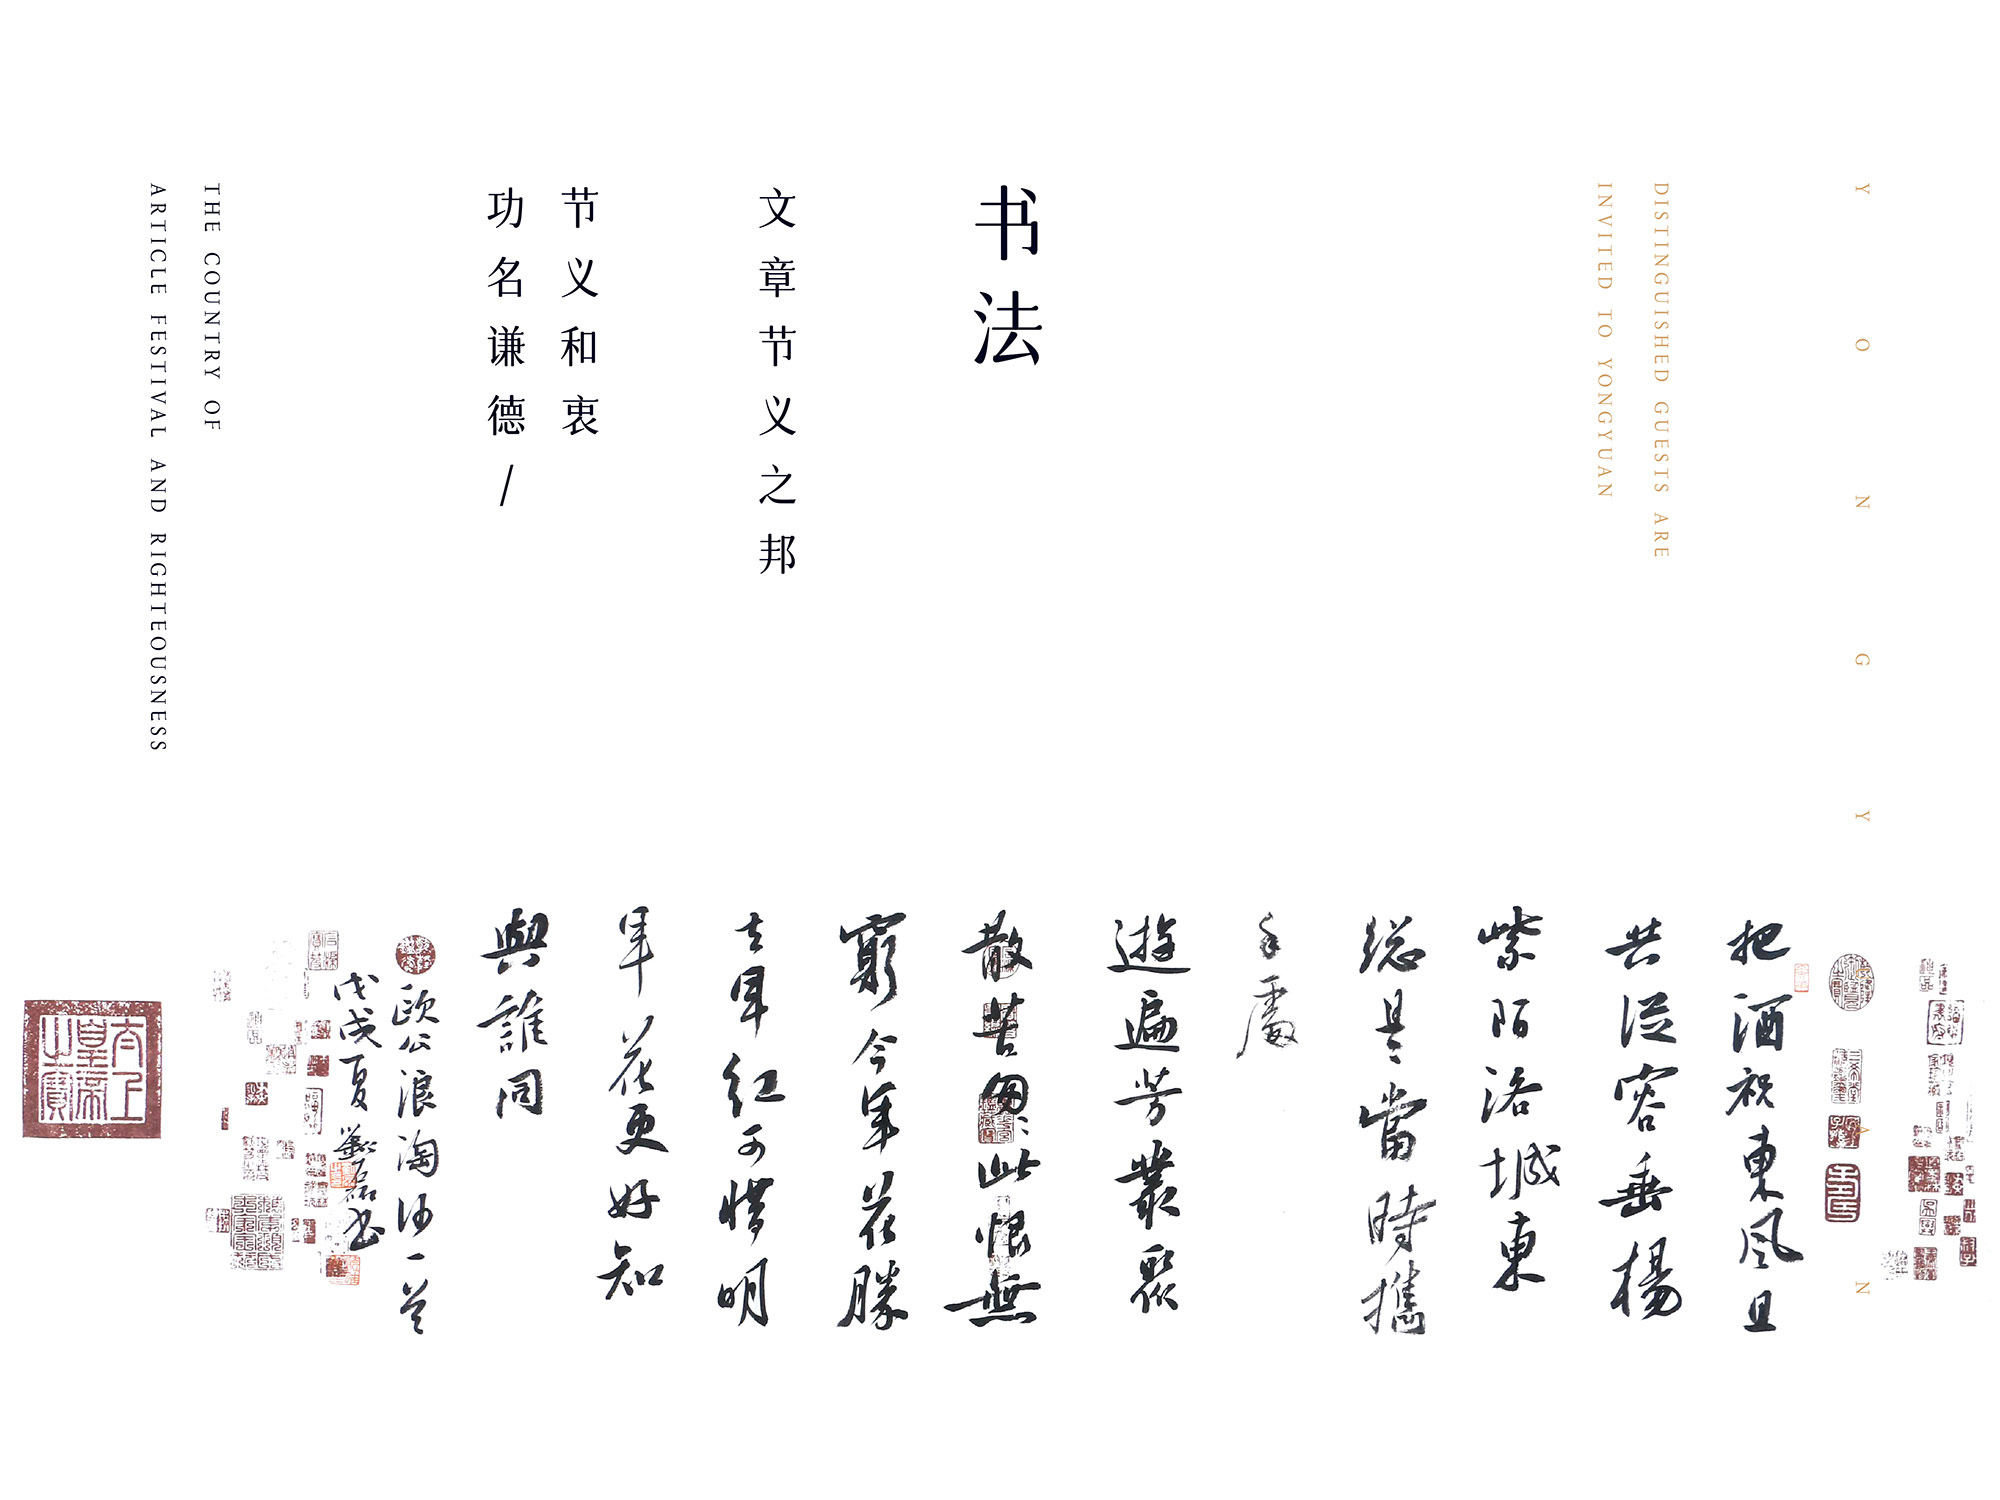 Y O N G Y U A N
DISTINGUISHED GUESTS ARE
INVITED TO YONGYUAN
书法
文章节义之邦
节义和衷
功名谦德/
THE COUNTRY OF
ARTICLE FESTIVAL AND RIGHTEOUSNESS
把酒祝東風且
共從容垂楊
紫陌洛城東
総是當時攜
手處
遊遍芳叢聚
散苦匆匆此恨無
窮今年花勝
去年紅可惜明
年花更好知
與誰同
歐公浪淘沙一首
戊戌夏劉磊書
太上皇帝之寶